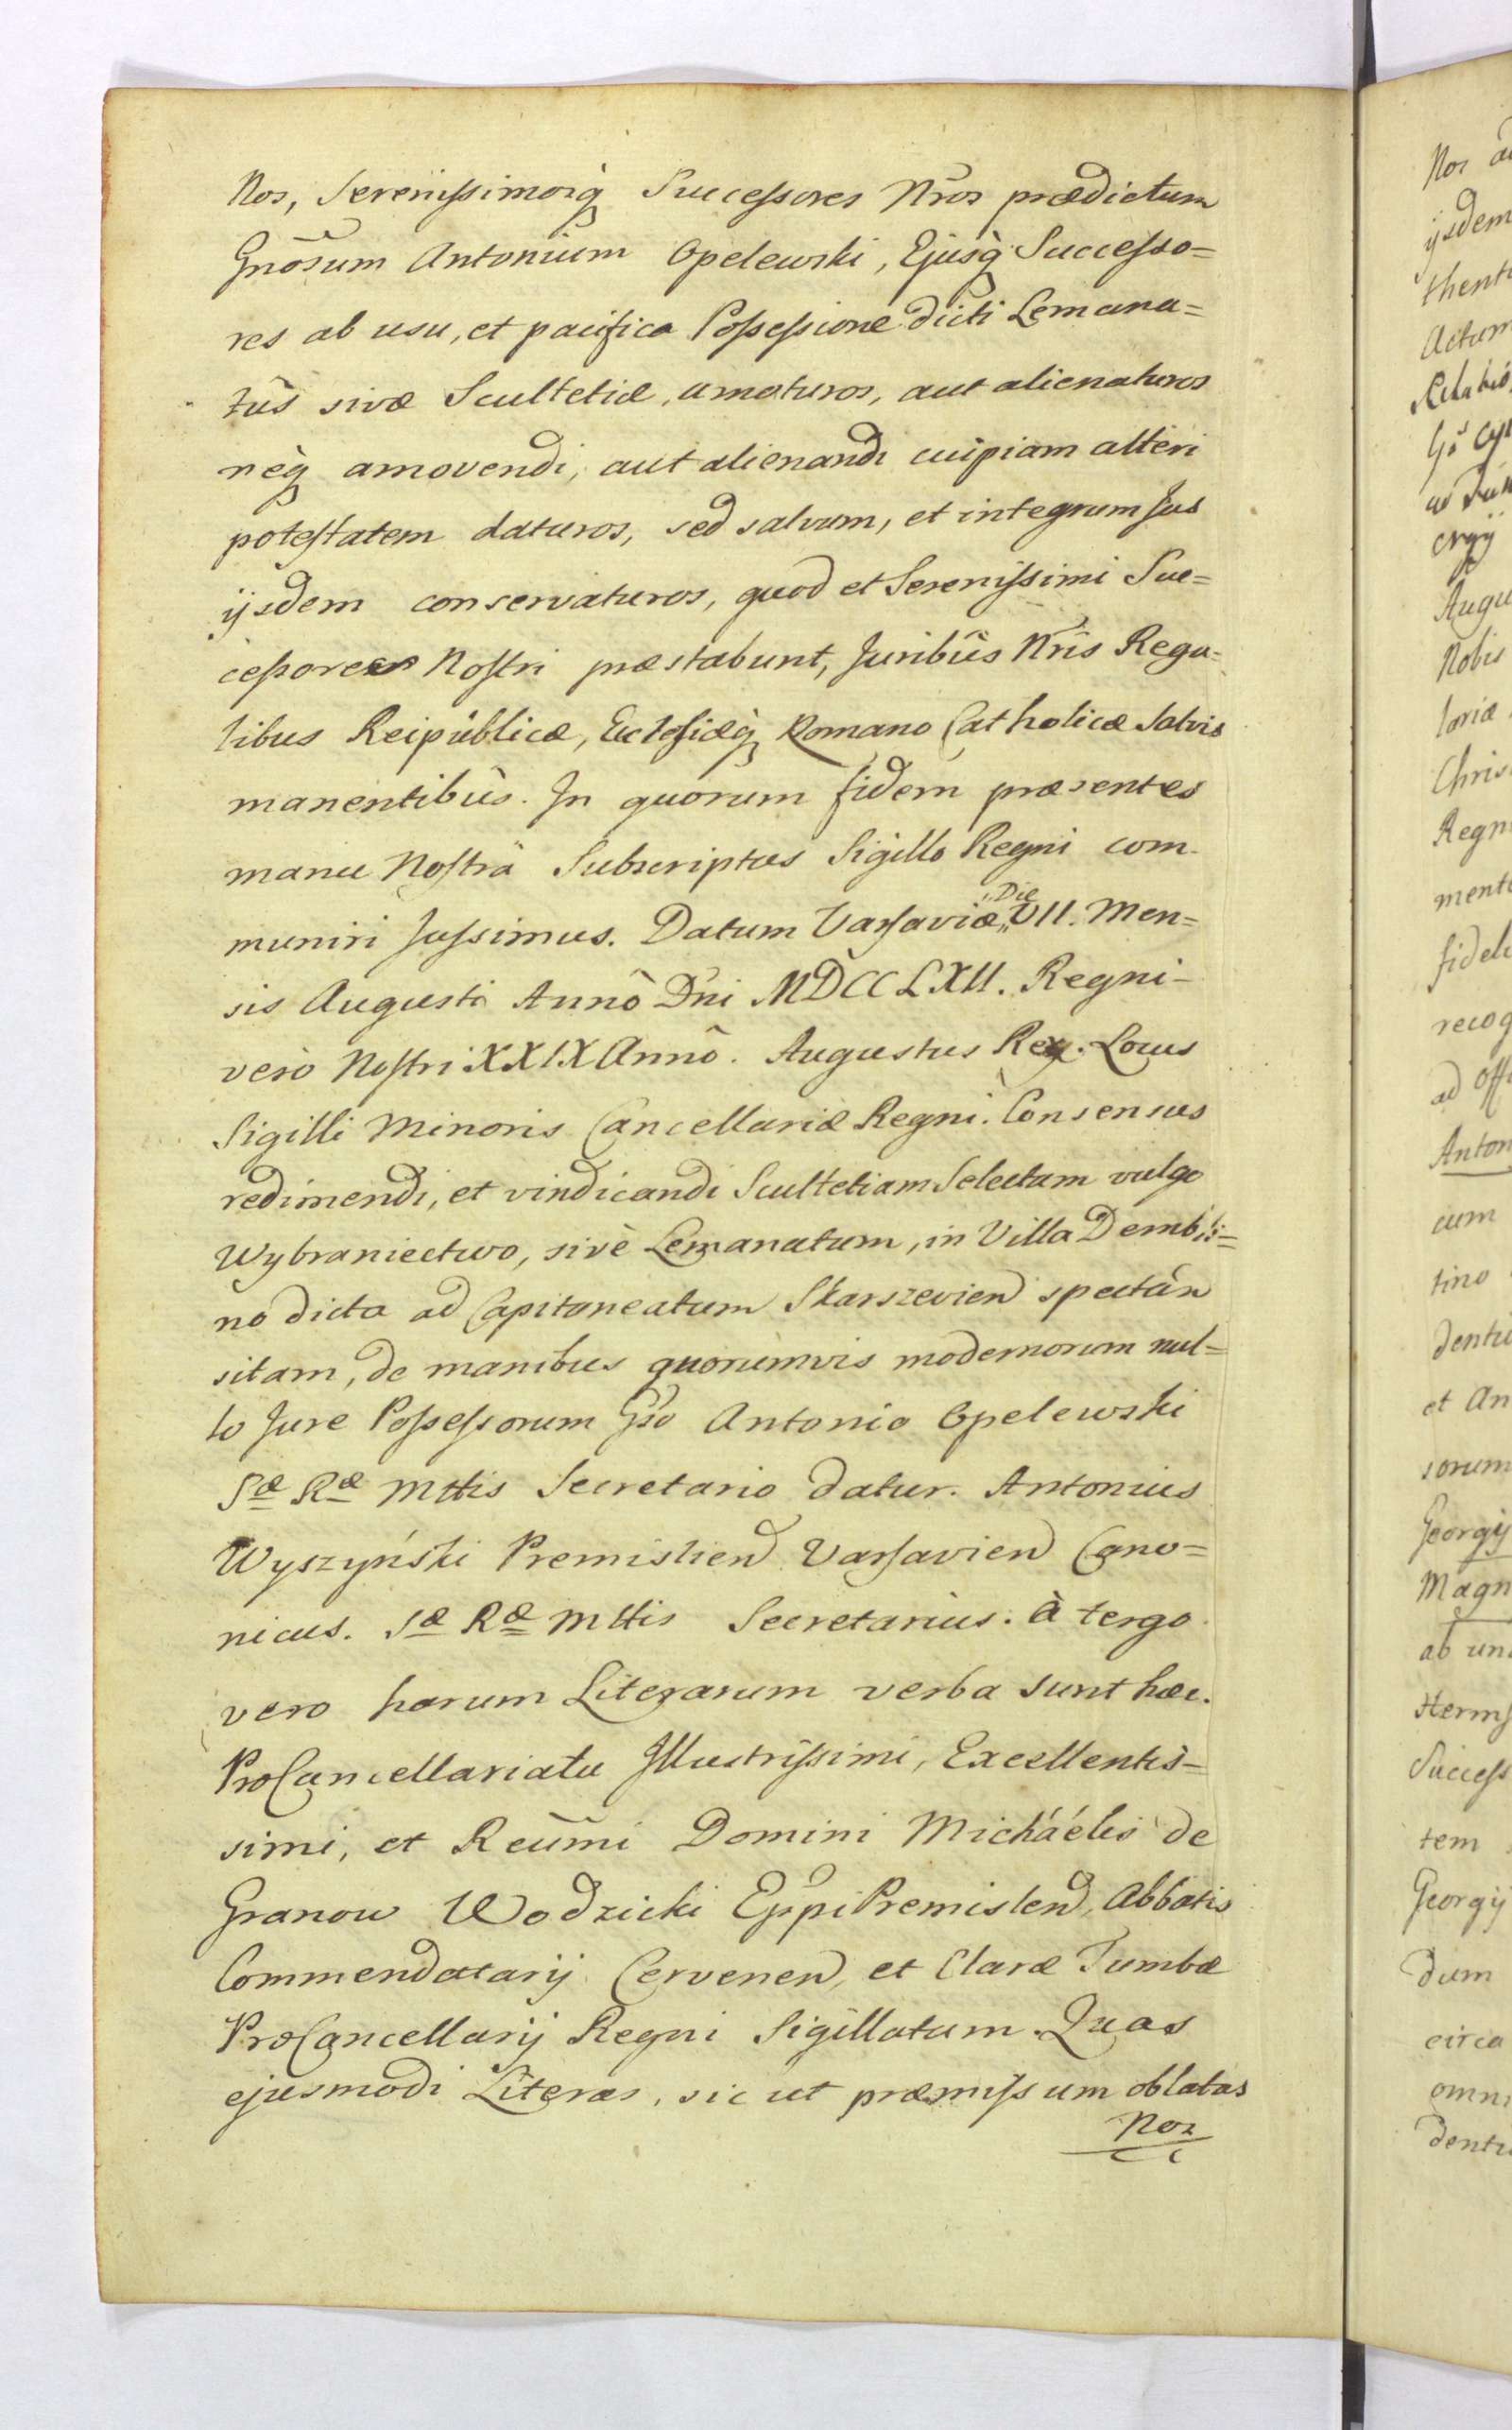 Nos, Serenissimosq̃ Successores Nros prædictum
Gnõsum Antonium Opelewski, Ejusq̀ Successo=
res ab usu, et pacifica Possessione dicti Lemana=
tûs sivæ Scultetiæ, amoturos, aut alienaturos
nèq amovendi, aut alienandi cuipiam alteri
potestatem daturos, sed salvum, et integrum Jus
ijsdem conservaturos, quod et Serenissimi Suc=
cessores Nostri præstabunt, Juribûs Nrîs Rega=
libus Reipùblicæ, Ecclesiæq̀ Romano Catholicæ Salvis
manentibùs. In quorum fidem præsentes
manu Nostrâ Subscriptas Sigillo Regni com
muniri Jussimus. Datum Varsaviæ „Die„ VII. Men=
sis Augusti Annô Dni MDCCLXII. Regni-
verò Nostri XXIX Annô. Augustus Rex. Locus
Sigilli Minoris Cancellariæ Regni. Consensus
redimendi, et vindicandi Scultetiam Selectam vulgo
Wybraniectwo, sivè Lemanatum, in Villa Dembli=
no dicta ad Capitaneatum Skarszevien spectân
sitam, de manibus quorumvis modernorum nul=
lo Jure Possessorum Gso Antonio Opelewski
Sæ Ræ Mttis Secretario datur. Antonius
Wyszyński Premislien Varsavien Cano=
nicus. Sæ Ræ Mttis Secretarius. à tergo
vero harum Literarum verba sunt hæc.
ProCancellariatu Illustrissimi, Excellentis-
simi, et Reũmi Domini Micháélis de
Granow Wodzicki Eppi Premislen, Abbatis
Commendatarij Cervenen, et Claræ Tumbæ
ProCancellarij Regni Sigillatum. Quas
ejusmodi Literas, sicut præmissum oblatas
Nos
Nos
ijsdem
Actum
Nobis
Chris
Regn
recog
Anton
cum
tino
et An
sorum
Georgij
Magn
Success
tem
Georgij
dum
circa
omni